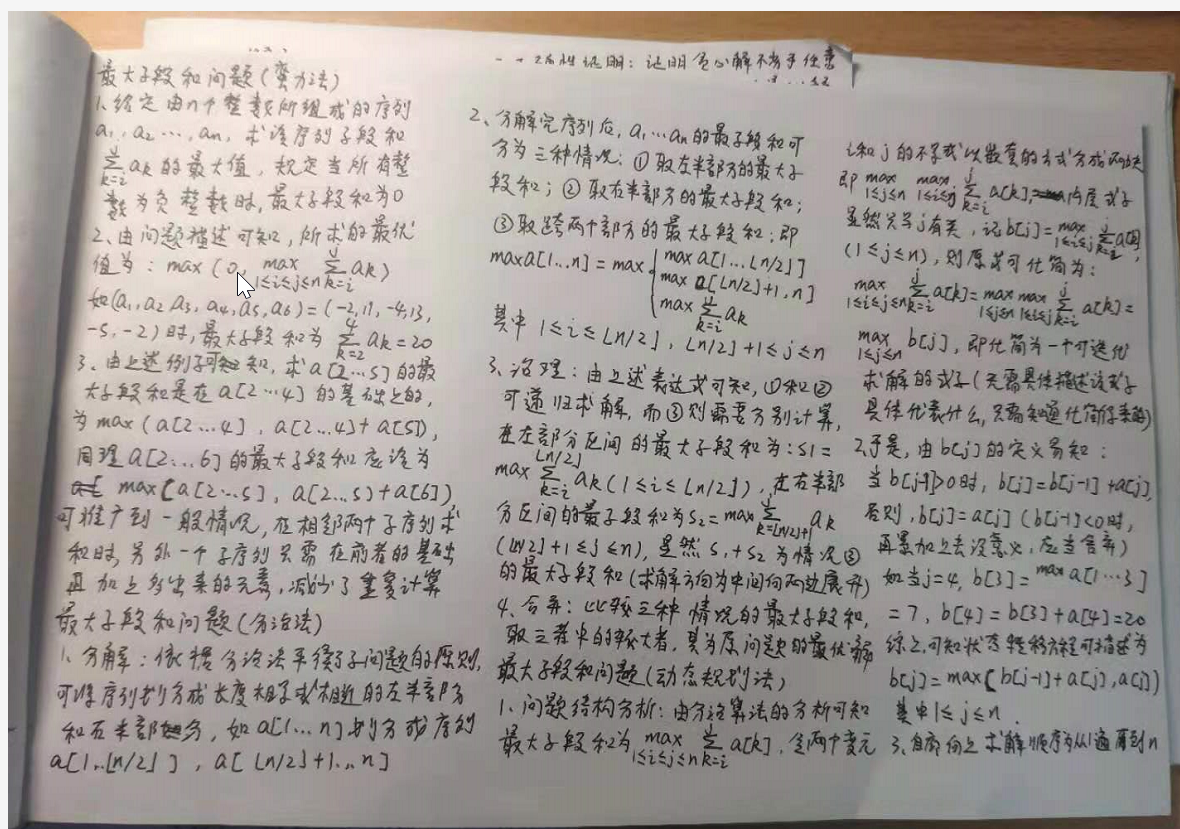 最大子段和问题(蛮力法)
1、给定由n个整数所组成的序列
a₁,a₂…,aₙ,求该序列子段和
∑ₖ₌ᵢʲ aₖ的最大值,规定当所有整
数为负整数时,最大子段和为0
2、由问题描述可知,所求的最优
值为:max(0, max 1≤i≤j≤n ∑ₖ₌ᵢʲ aₖ)
如(a₁,a₂,a₃,a₄,a₅,a₆)=(-2,11,-4,13,
-5,-2)时,最大子段和为∑ₖ₌₂⁴ aₖ=20
3、由上述例子可知,求a[2…5]的最
大子段和是在a[2…4]的基础上的,
为max(a[2…4],a[2…4]+a[5]),
同理a[2…6]的最大子段和应该为
max(a[2…5],a[2…5)+a[6])
可推广到一般情况,在相邻两个子序列求
和时,另外一个子序列只需在前者的基础
再加上多出来的元素,减少了重复计算
最大子段和问题(分治法)
1、分解:依据分治法平衡子问题的原则,
可将序列划分成长度相等或相近的左半部分
和右半部分,如a[1…n]划分成序列
a[1..⌊n/2⌋],a[⌊n/2⌋+1..n]
性证明:证明贪心解不劣于任意
2、分解完序列后,a₁…aₙ的最子段和可
分为三种情况:①取左半部分的最大子
段和;②取右半部分的最大子段和;
③取跨两个部分的最大子段和:即
maxa[1…n]=max{max a[1…⌊n/2⌋]
max a[⌊n/2⌋+1,n]
max ∑ₖ₌ᵢʲ aₖ
其中1≤i≤⌊n/2⌋,⌊n/2⌋+1≤j≤n
3、治理:由上述表达式可知,①和②
可递归求解,而③则需要分别计算,
在左部分区间的最大子段和为:s1=
max ∑ₖ₌ᵢ^⌊n/2⌋ aₖ(1≤i≤⌊n/2⌋),在右半部
分区间的最子段和为s₂=max ∑ₖ₌⌊n/2⌋₊₁ʲ aₖ
(⌊n/2⌋+1≤j≤n),显然s₁+s₂为情况③
的最大子段和(求解方向为中间向两边展开)
4、合并:比较三种情况的最大子段和,
取三者中的较大者,其为原问题的最优解
最大子段和问题(动态规划法)
1、问题结构分析:由分治算法的分析可知
最大子段和为 max 1≤i≤j≤n ∑ₖ₌ᵢʲ a[k],含两个变元
i和j的不等式以嵌套的方式分成两块
即 max 1≤j≤n max 1≤i≤j ∑ₖ₌ᵢʲ a[k],内层式子
显然只与j有关,记b[j]=max 1≤i≤j ∑ₖ₌ᵢʲ a[k],
(1≤j≤n),则原式可化简为:
max 1≤i≤j≤n ∑ₖ₌ᵢʲ a[k]=max 1≤j≤n max 1≤i≤j ∑ₖ₌ᵢʲ a[k]=
max 1≤j≤n b[j],即化简为一个可迭代
求解的式子(无需具体描述该式子
具体代表什么,只需知道化简得来的)
2、于是,由b[j]的定义易知:
当b[j-1]>0时,b[j]=b[j-1]+a[j],
否则,b[j]=a[j](b[j-1]<0时,
再累加上去没意义,应当舍弃)
如当j=4,b[3]=max a[1…3]
=7,b[4]=b[3]+a[4]=20
综上可知状态转移方程可描述为
b[j]=max(b[j-1]+a[j],a[j])
其中1≤j≤n.
3、自底向上求解顺序为从1遍历到n